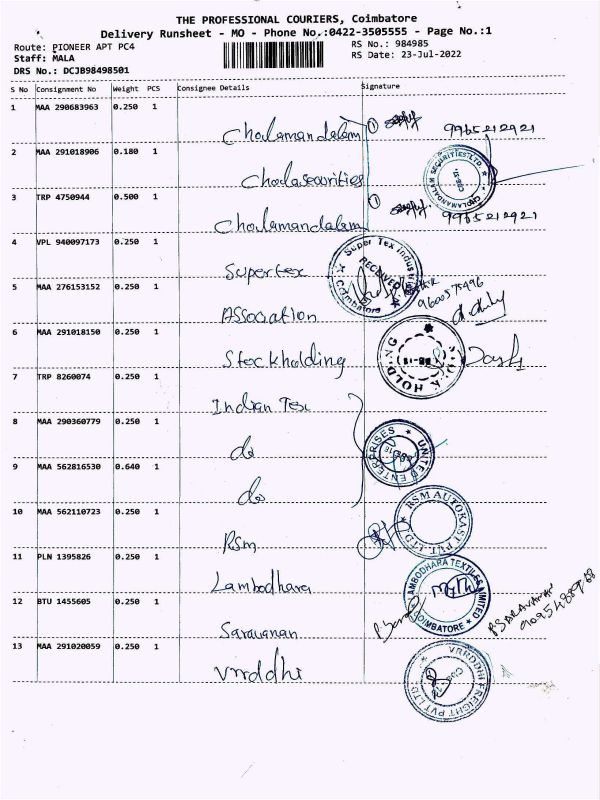 THE PROFESSIONAL COURIERS, Coimbatore
Delivery Runsheet - MO - Phone No.:0422-3505555 - Page No.:1
Route: PIONEER APT PC4
RS No.: 984985
Staff: MALA
RS Date: 23-Jul-2022
DRS No.: DCJB98498501
S No Consignment No Weight PCS Consignee Details Signature
1 MAA 290683963 0.250 1
Cholamandalam 9965212921
2 MAA 291018906 0.180 1
Cholasecurities CHOLAMANDALAM SECURITIES LTD.
3 TRP 4750944 0.500 1
Cholamandalam 9965212921
4 VPL 940097173 0.250 1
Supertex Super Tex Industries RECEIVED Coimbatore
5 MAA 276153152 0.250 1
9600575496
Association
6 MAA 291018150 0.250 1
Stockholding HOLDING
7 TRP 8260074 0.250 1
Indian Tex
8 MAA 290360779 0.250 1
do UNITED ENTERPRISES
9 MAA 562816530 0.640 1
do
10 MAA 562110723 0.250 1
Rsm RSM AUTOKAST PVT LTD
11 PLN 1395826 0.250 1
Lambodhara LAMBODHARA TEXTILES LIMITED COIMBATORE
12 BTU 1455605 0.250 1
Saravanan
13 MAA 291020059 0.250 1
Vrrddhi VRRDDHI FREIGHT PVT LTD